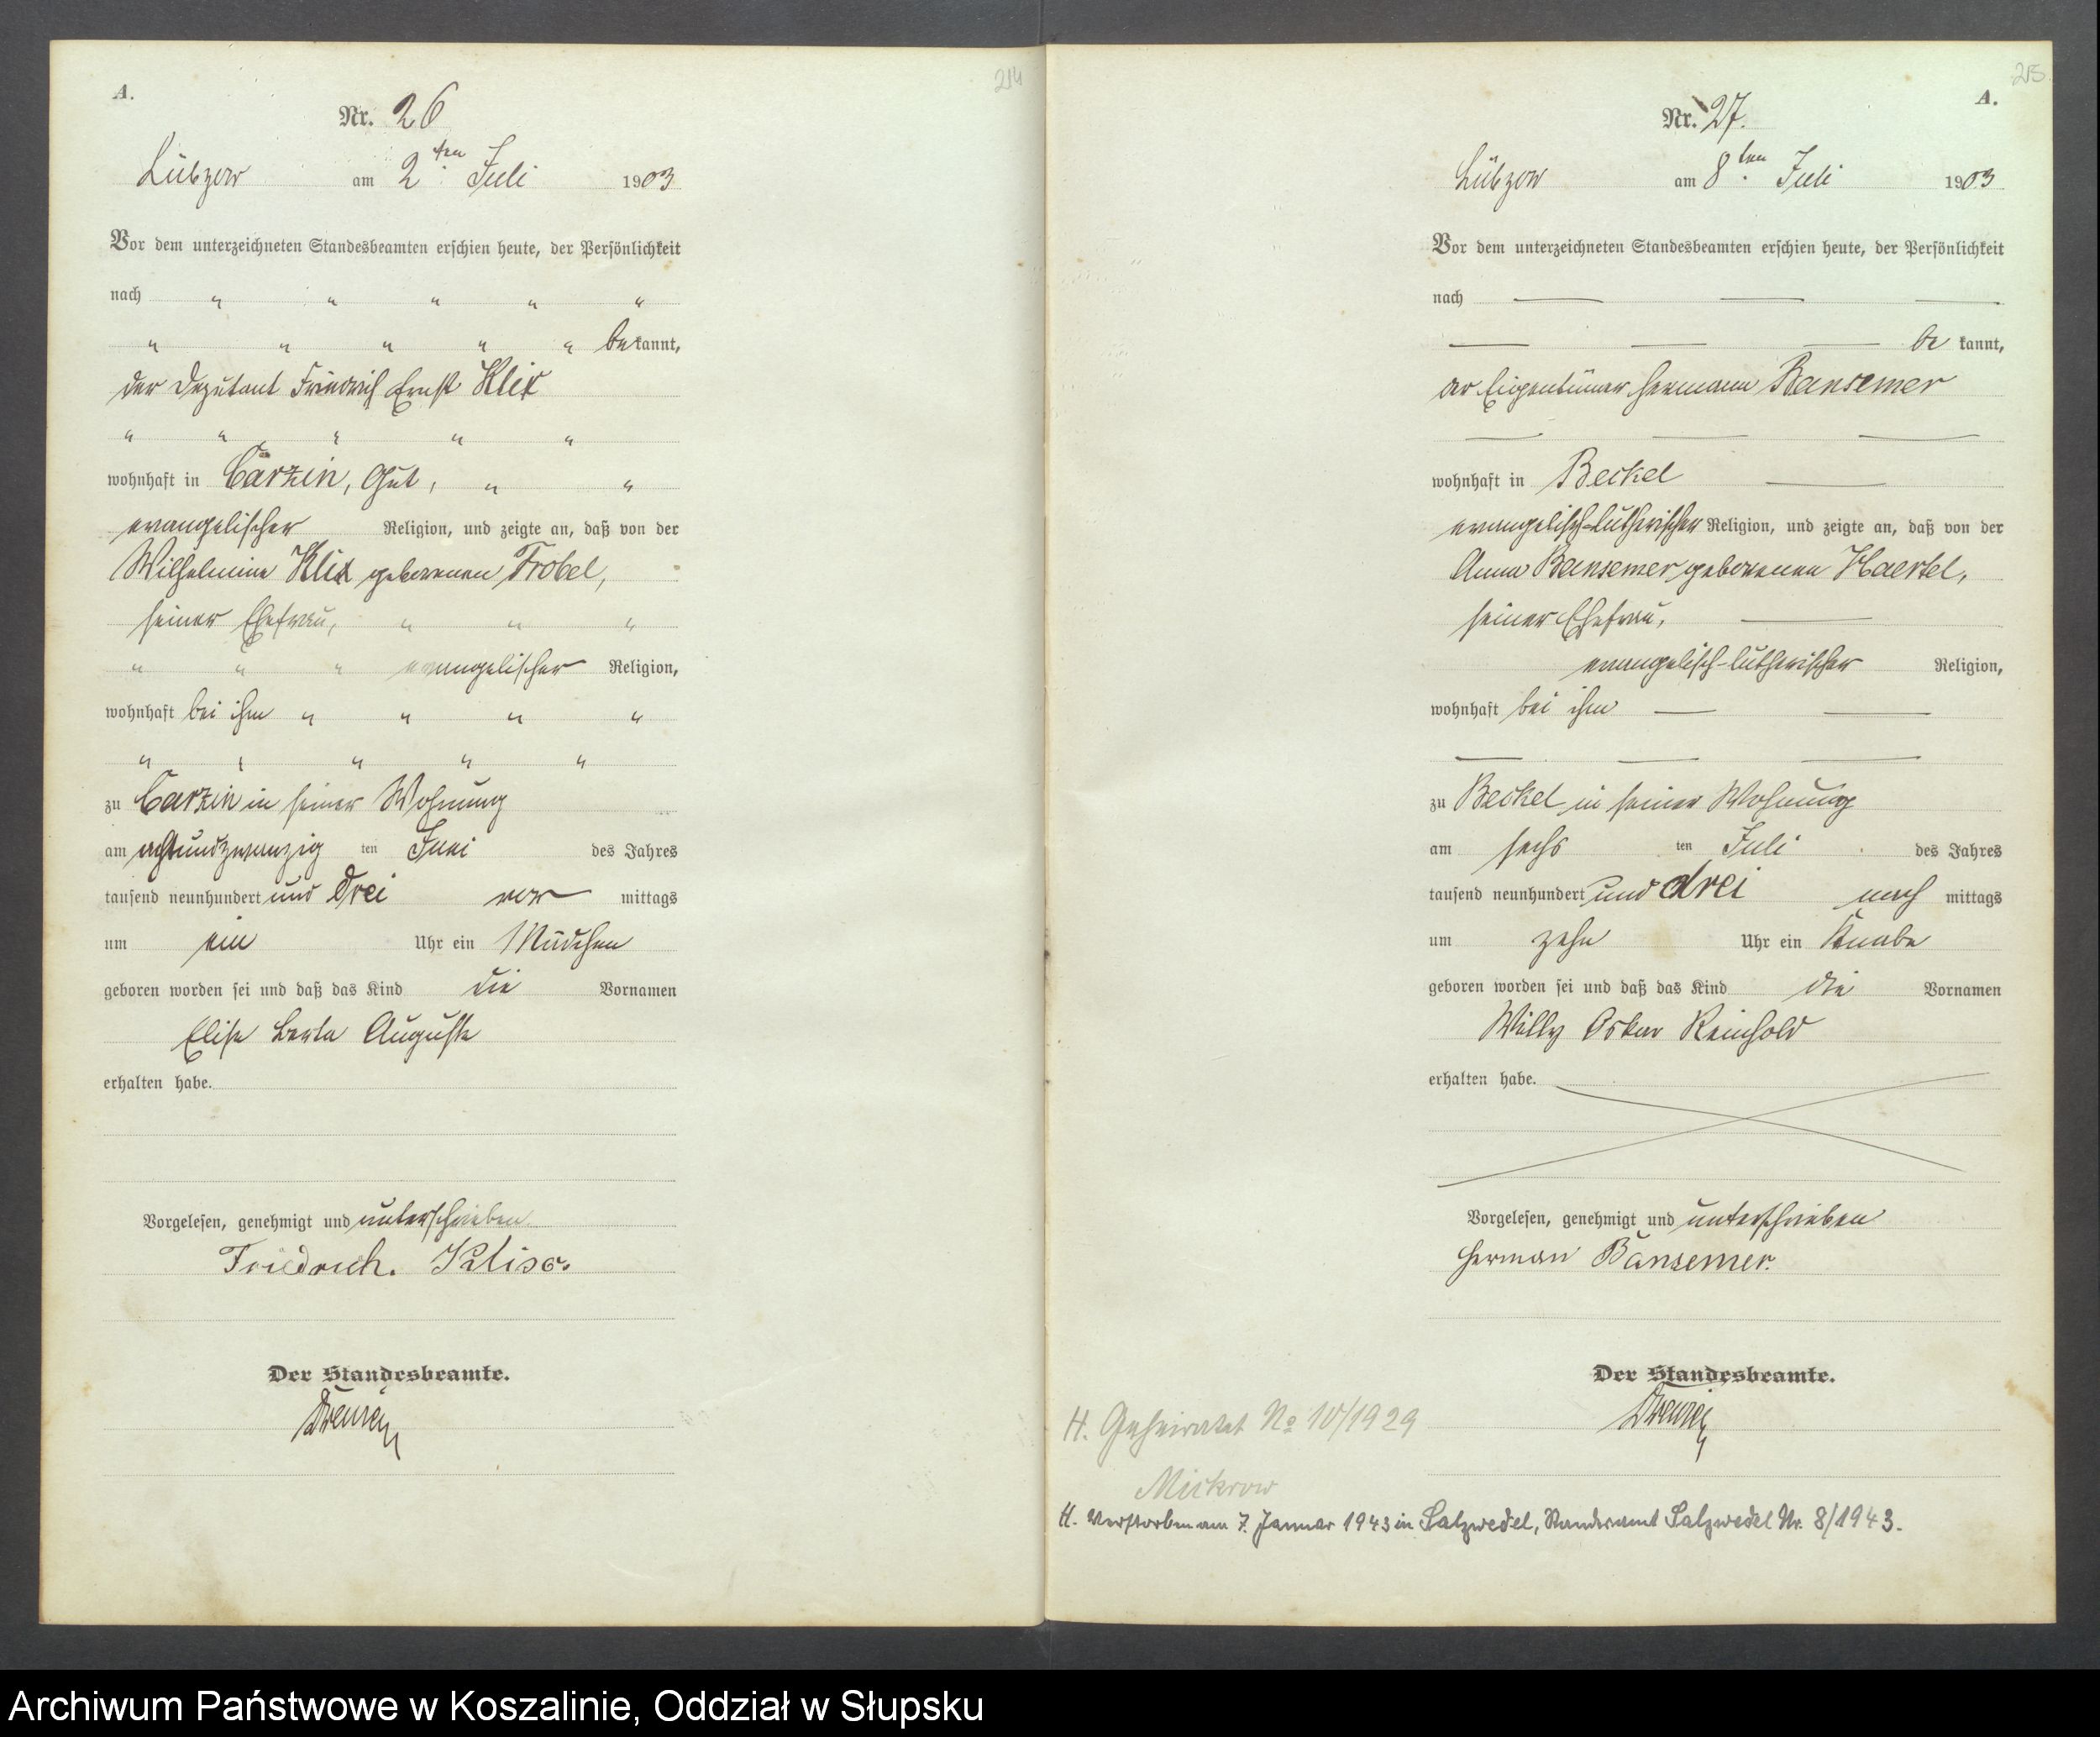 214
A.
Nr. 26
Lübzow am 2ten Juli 1903
Vor dem unterzeichneten Standesbeamten erschien heute, der Persönlichkeit
nach " " " " "
" " " " " bekannt,
der Deputant Friedrich Ernst Klix
" " " " "
wohnhaft in Carzin, Gut, " "
evangelischer Religion, und zeigte an, daß von der
Wilhelmine Klix geborenen Trobel,
seiner Ehefrau, " " "
" " " evangelischer Religion,
wohnhaft bei ihm " " " "
" " " " "
zu Carzin in seiner Wohnung
am achtundzwanzig ten Juni des Jahres
tausend neunhundert und drei vor mittags
um ein Uhr ein Mädchen
geboren worden sei und daß das Kind die Vornamen
Elise Berta Auguste
erhalten habe.
Vorgelesen, genehmigt und unterschrieben
Friedrich. Klix.
Der Standesbeamte.
215
A.
Nr. 27.
Lübzow am 8ten Juli 1903
Vor dem unterzeichneten Standesbeamten erschien heute, der Persönlichkeit
nach — — —
— — — be kannt,
der Eigentümer Hermann Bansemer
— — —
wohnhaft in Beckel —
evangelisch-lutherischer Religion, und zeigte an, daß von der
Anna Bansemer geborenen Haertel,
seiner Ehefrau, —
evangelisch-lutherischer Religion,
wohnhaft bei ihm — —
— — —
zu Beckel in seiner Wohnung
am sechs ten Juli des Jahres
tausend neunhundert und drei nach mittags
um zehn Uhr ein Knabe
geboren worden sei und daß das Kind die Vornamen
Willy Oskar Reinhold
erhalten habe.
Vorgelesen, genehmigt und unterschrieben
Herman Bansemer.
Der Standesbeamte.
H. Geheiratet No 10/1929
Mickrow
H. Verstorben am 7. Januar 1943 in Salzwedel, Standesamt Salzwedel Nr. 8/1943.
Archiwum Państwowe w Koszalinie, Oddział w Słupsku